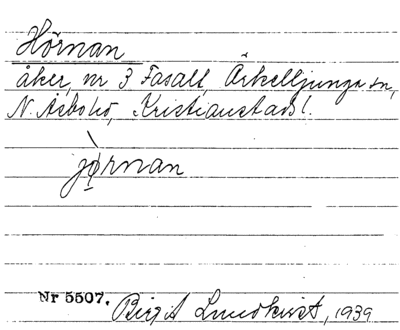 Hörnan
åker, nr 3 Fasalt, Örkelljunga sn,
N. Åsbo hd, Kristianstads l.
jø̀rnan
Nr 5507. Birgit Lundkvist, 1939